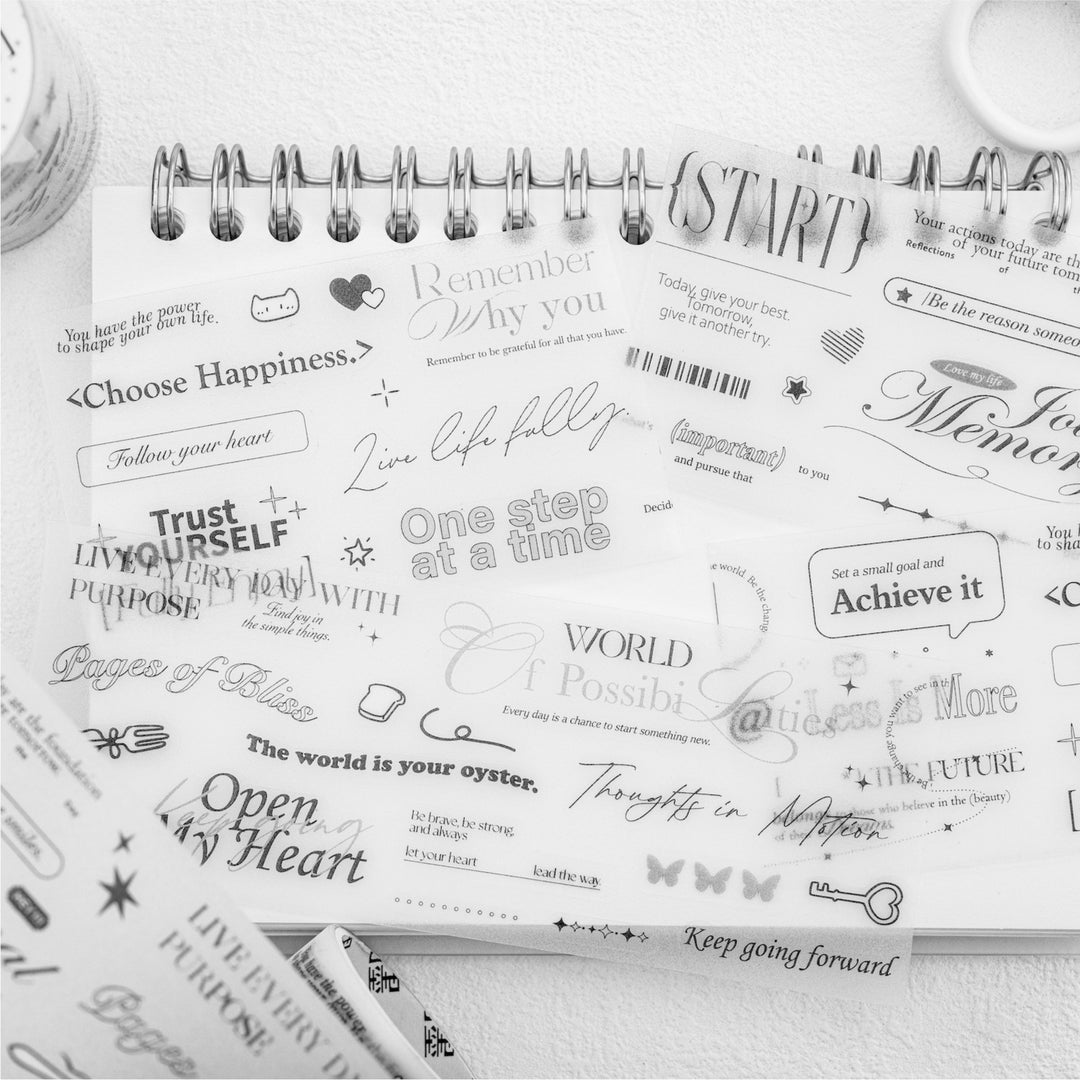 You have the power
to shape your own life.
Remember
Why you
Remember to be grateful for all that you have.
<Choose Happiness.>
Follow your heart
Live life fully.
Trust
YOURSELF
One step
at a time
Decid
{START}
Your actions today are th
of your future tom
Reflections of
Today, give your best.
Tomorrow,
give it another try.
|Be the reason someo
Love my life
Memor
(important)
and pursue that
to you
Set a small goal and
Achieve it
You h
to sha
<C
LIVE EVERY DAY WITH
PURPOSE
[Enjoy]
Find joy in
the simple things.
Pages of Bliss
WORLD
Of Possibilities
Every day is a chance to start something new.
Less Is More
the change you want to see in th
world. Be the chang
THE FUTURE
belongs
those who believe in the (beauty)
of the
The world is your oyster.
Thoughts in Motion
Open
My Heart
Keep going
Be brave, be strong,
and always
let your heart
lead the way.
Keep going forward
are the foundation
tomorrow.
LIVE EVERY D
PURPOSE
Pages
have the power